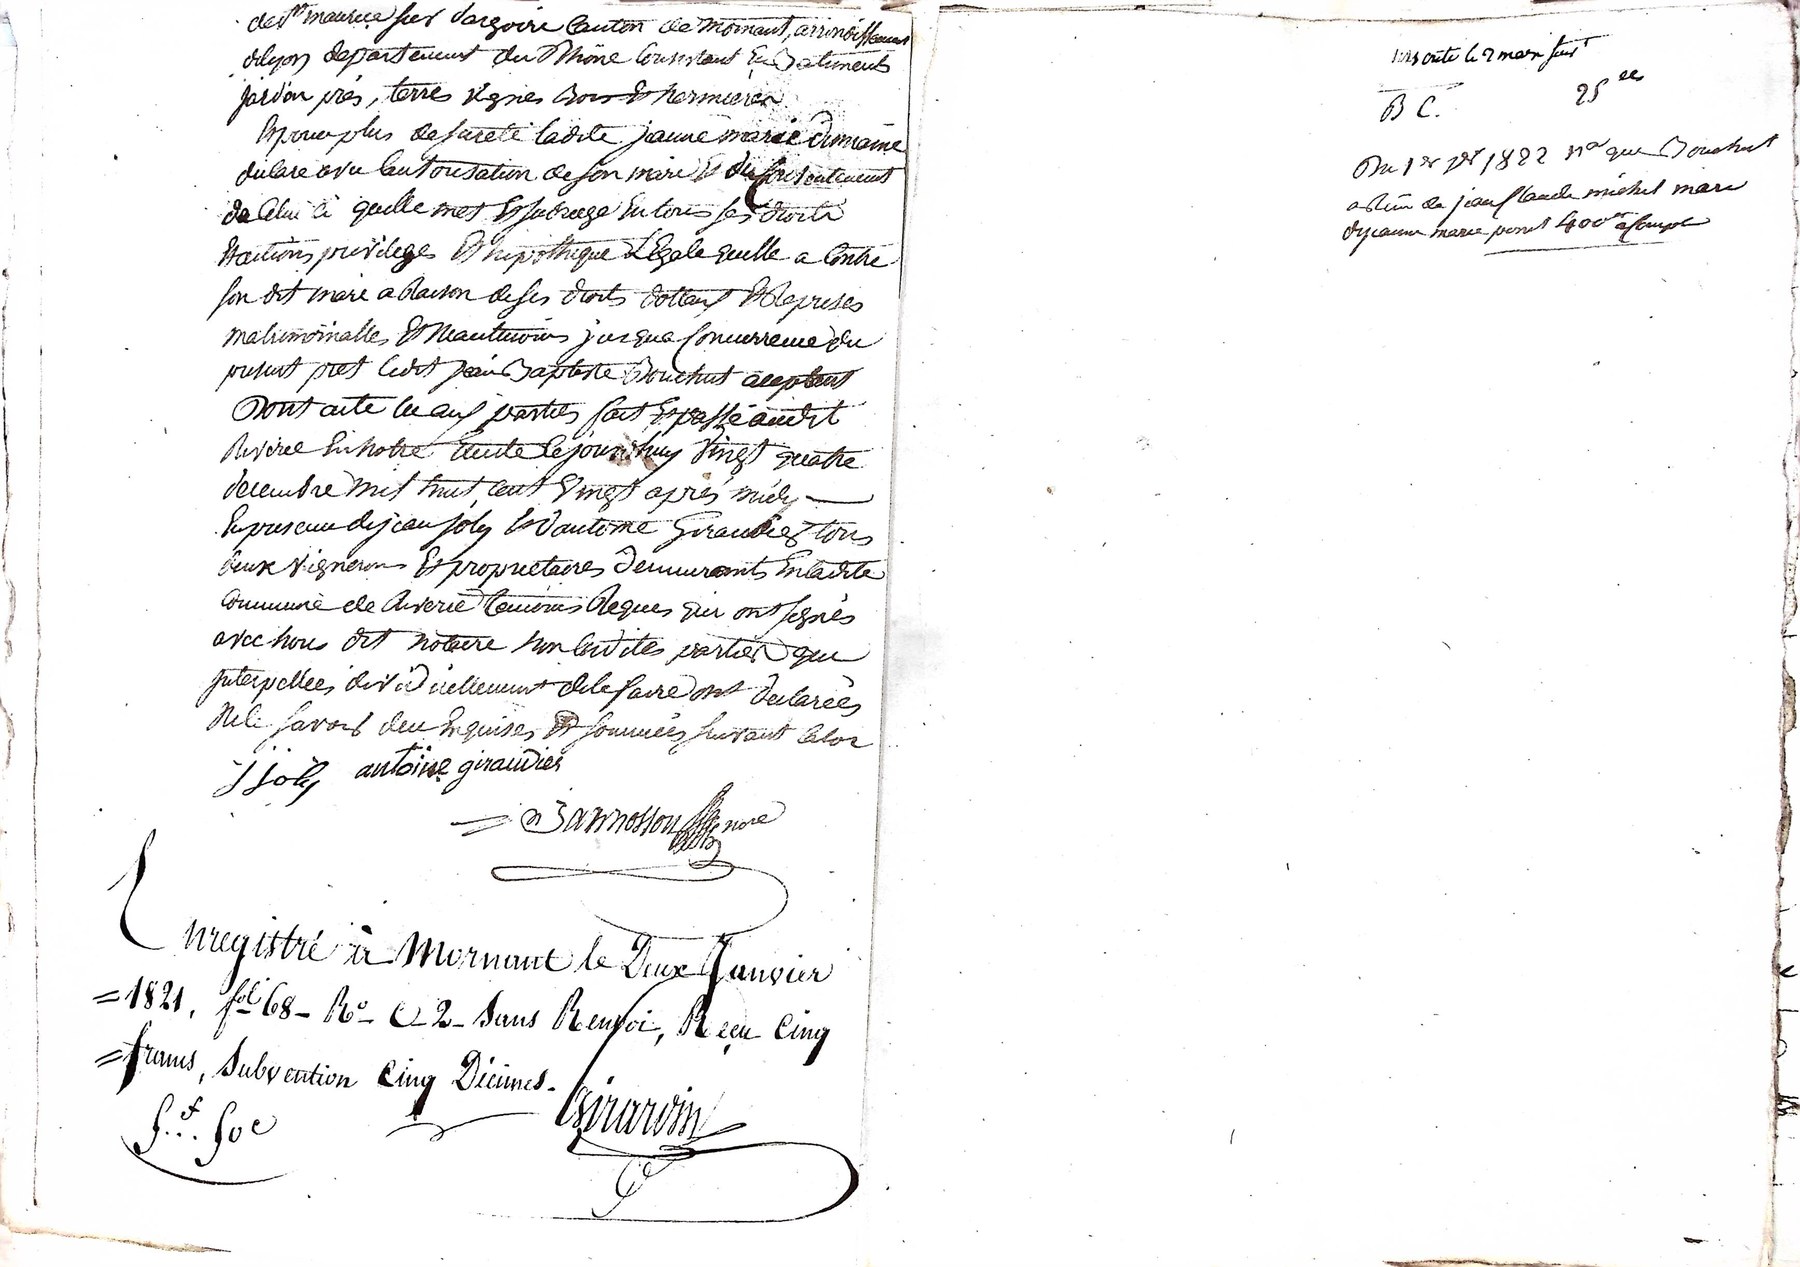 de St maurice sur dargoire Canton de Mornant, arrondissement
de lyon departement du Rhône Consistant En Batiments
jardin prés, terres vignes Bois Et hermieres
Et pour plus de sureté ladite jeanne marie Dumaine
declare avec l'autorisation de son mari Et du Consentement
de Celui ci quelle met Et subroge En tous ses droits
Et actions privileges Et hipothéque Légale quelle a Contre
son dit mari a Raison de ses droits dottaux Et Reprises
matrimonialles Et Neantmoins jusqua Concurrence du
present pret ledit jean Baptiste Bouchut acceptant
Dont acte lu aux parties fait Et passé audit
Riverie En notre Etude Cejourdhuy Vingt quatre
decembre mil huit cent Vingt après midy
En presence de jean joly Et d'antoine Giraudier tous
deux Vignerons Et proprietaires Demeurants En ladite
Commune de Riverie Temoins Requis qui ont signés
avec nous dit notaire non lesdites parties que
interpellées dividuellement de le faire ont declarées
Ne le savoir deu Enquises Et sommées suivant la loi
j joly antoine giraudier
Bannosson nore
Enregistré à Mornant le Deux Janvier
=1821, fol 68 - Ro - C - 2 - Sans Renvoi, Reçu Cinq
=francs, Subvention Cinq Décimes.
Girardin
inscrite le 2 mars suivt
B C. 25
Du 1er 1822 que Bouchut
a Reçu de jean Claude michel mari
de jeanne marie 400 a Compte